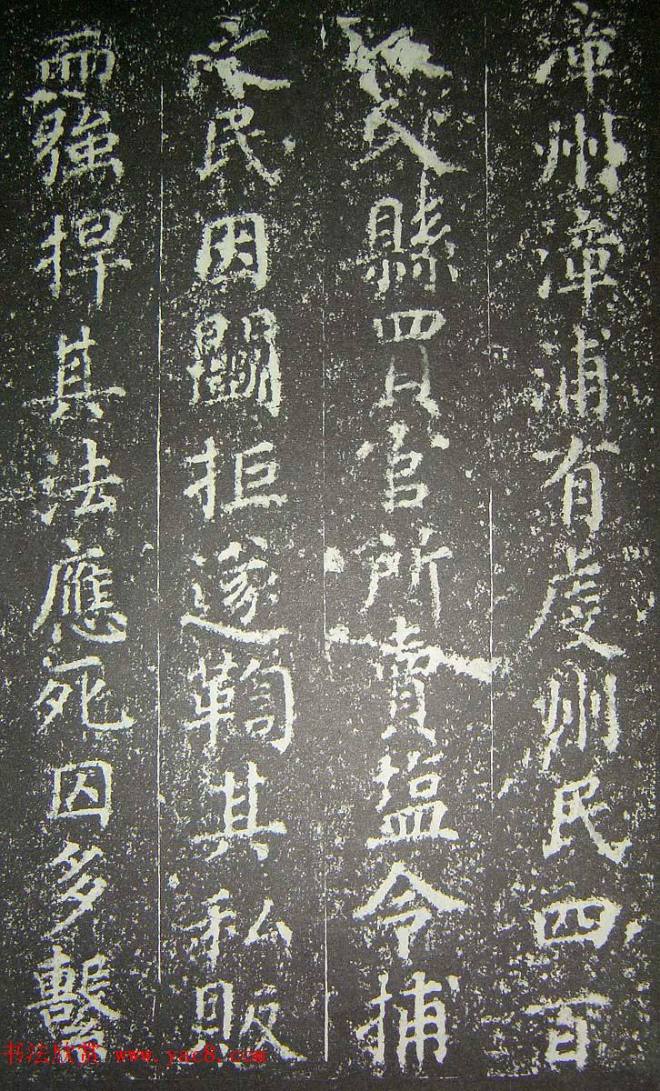 漳州漳浦有虔州民四百
民縣四貟官所賣塩令捕
之民因鬬拒遂鞫其私販
而強捍其法應死囚多繫
书法欣赏 www.yac8.com